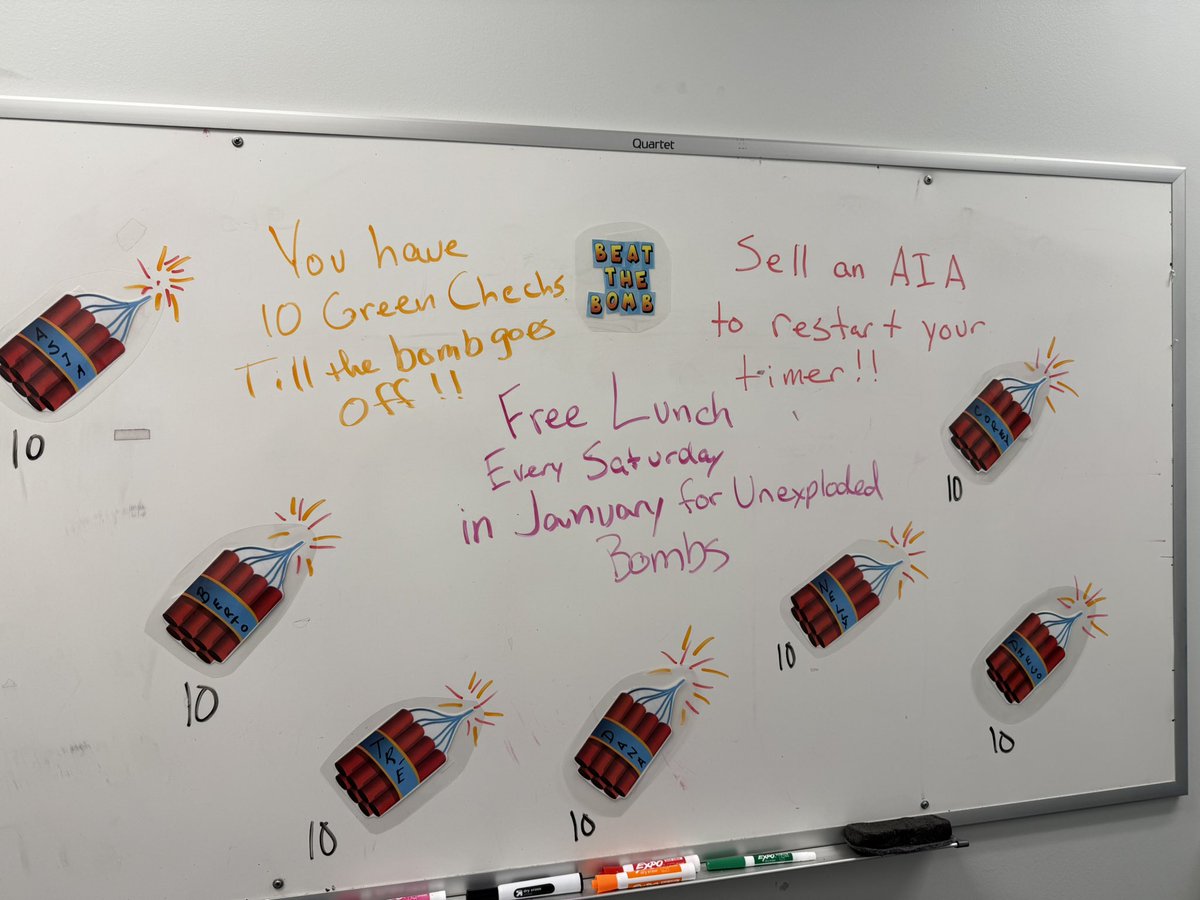 Quartet
You have
10 Green Checks
Till the bomb goes
off!!
BEAT
THE
BOMB
Sell an AIA
to restart your
timer!!
Free Lunch
Every Saturday
in January for Unexploded
Bombs
ASJA
10
COREY
10
BERTO
10
NELLY
10
10
TRE
10
DANA
10
EXPO
EXPO
dry erase